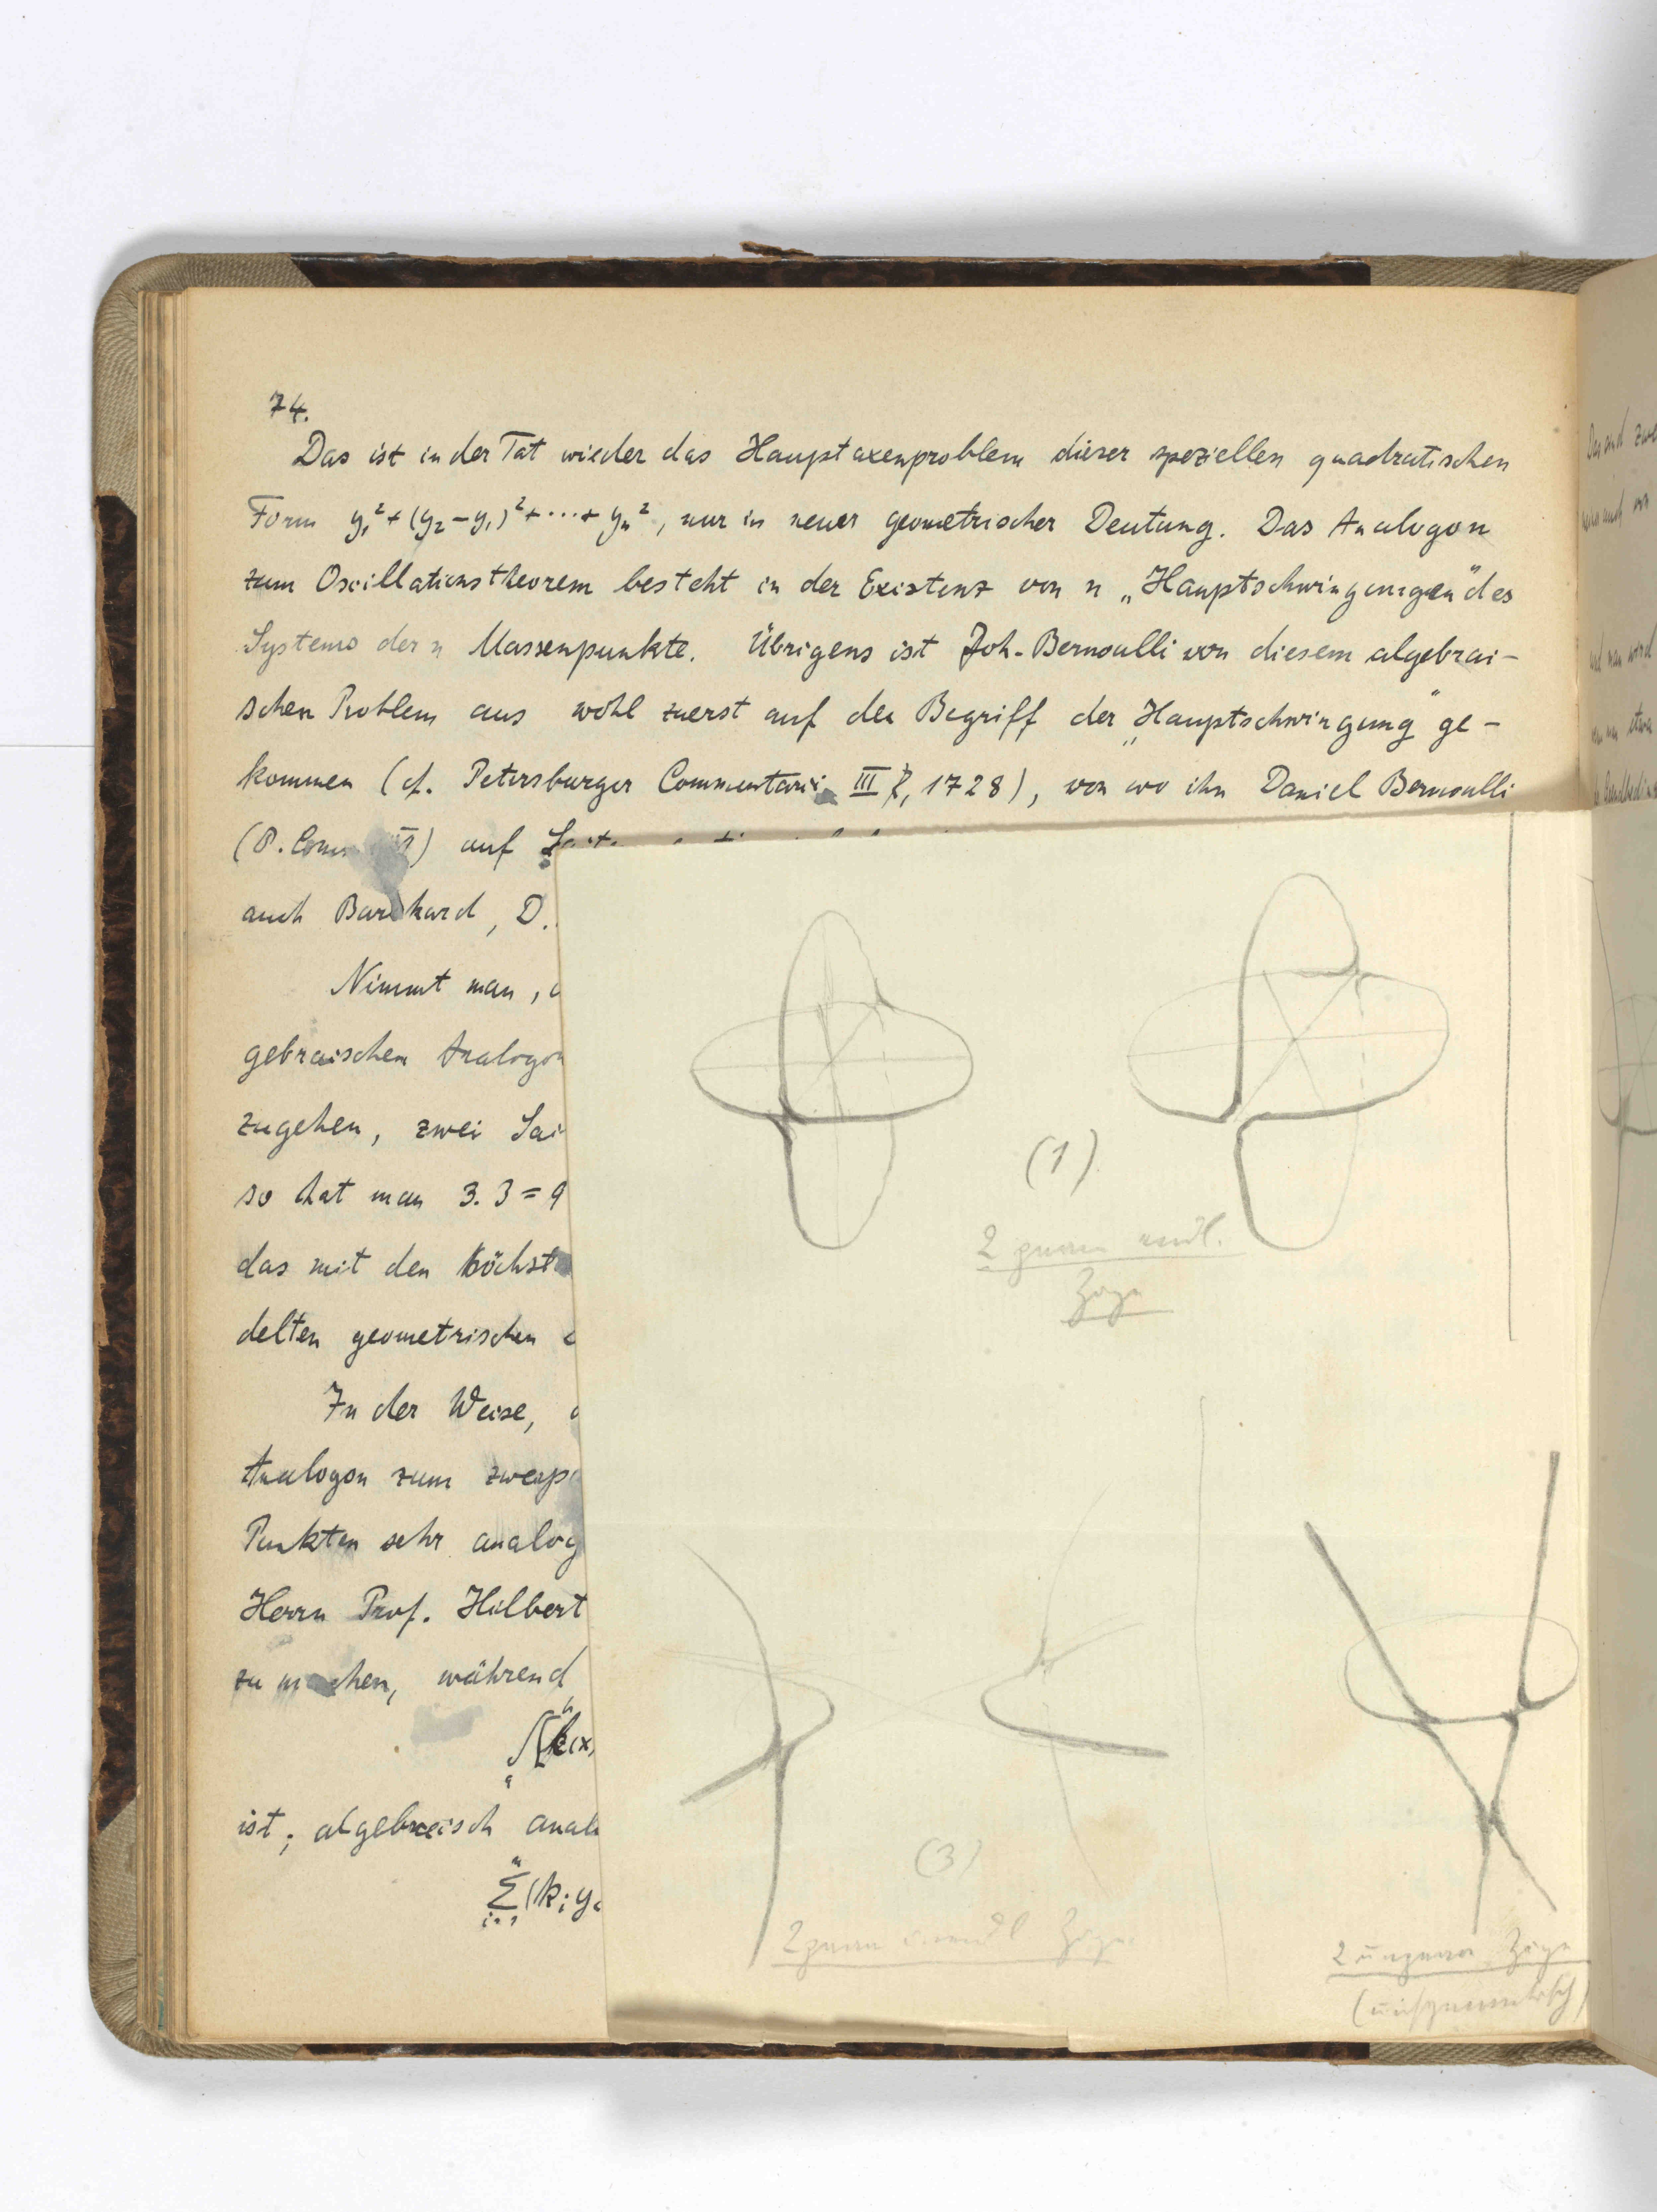 74.
Das ist in der Tat wieder das Hauptaxenproblem dieser speziellen quadratischen
Form y₁² + (y₂ − y₁)² + ··· + yₙ², nur in neuer geometrischer Deutung. Das Analogon
zum Oscillationstheorem besteht in der Existenz von n „Hauptschwingungen" des
Systems der n Massenpunkte. Übrigens ist Joh. Bernoulli von diesem algebrai-
schen Problem aus wohl zuerst auf den Begriff der „Hauptschwingung" ge-
kommen (cf. Petersburger Commentarii III, 1728), von wo ihn Daniel Bernoulli
(P. Comm.) auf
auch Burkhard, D.
Nimmt man,
gebraischen Analogon
zugehen, zwei Sai
so hat man 3.3 = 9
das mit den höchst
delten geometrischen
In der Weise,
Analogon zum zweip
Punkten sehr analog
Herrn Prof. Hilbert
zu machen, während
∫[k(x)
ist; algebraisch anal
Σ(kᵢyᵢ
(1)
2
Züge
(3)
2 Züge
2 Züge